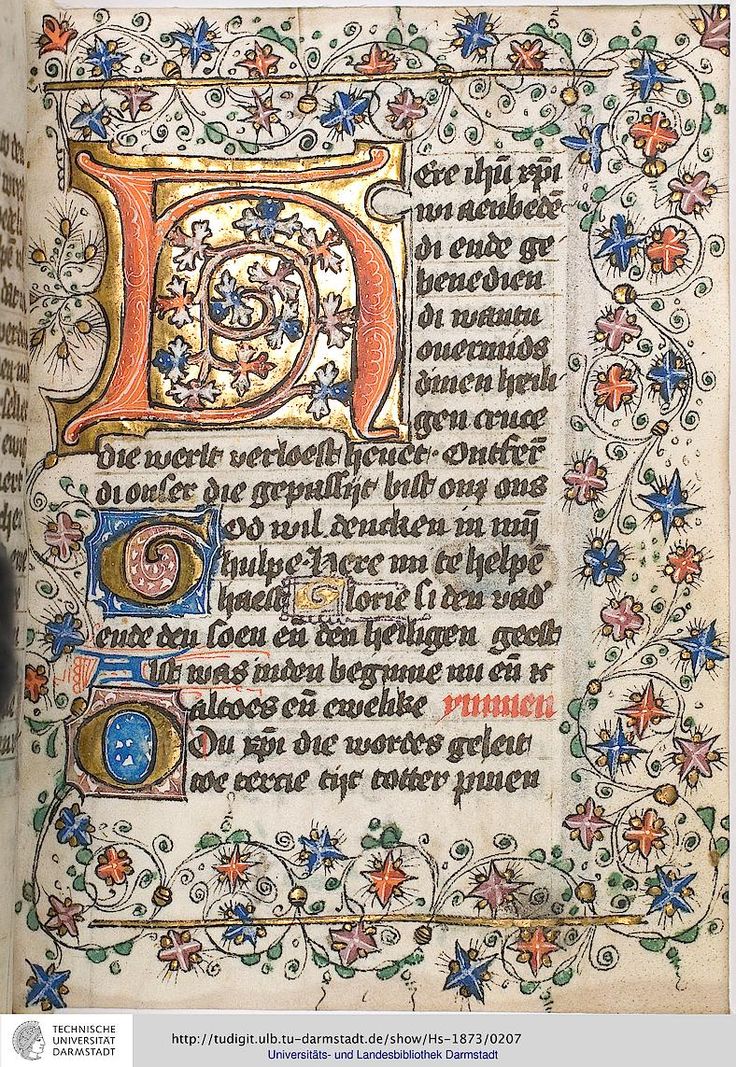 Here ihū xp̄i
wi aenbedē
di ende ge
benedien
di wantu
ouermids
dinen heili
gen cruce
die werlt verloest heuet · Ontfer̄
di onser die gepassijt bist om ons
God wil dencken in mij
hulpe · Here mi te helpē
haest Glorie si den vad'
ende den soen eñ den heiligen geest
Alst was inden beginne nu eñ is
altoes eñ ewelike ymmen
Ou xp̄i die wordes geleit
toe tercie tijt totter pinen
TECHNISCHE
UNIVERSITÄT
DARMSTADT
http://tudigit.ulb.tu-darmstadt.de/show/Hs-1873/0207
Universitäts- und Landesbibliothek Darmstadt